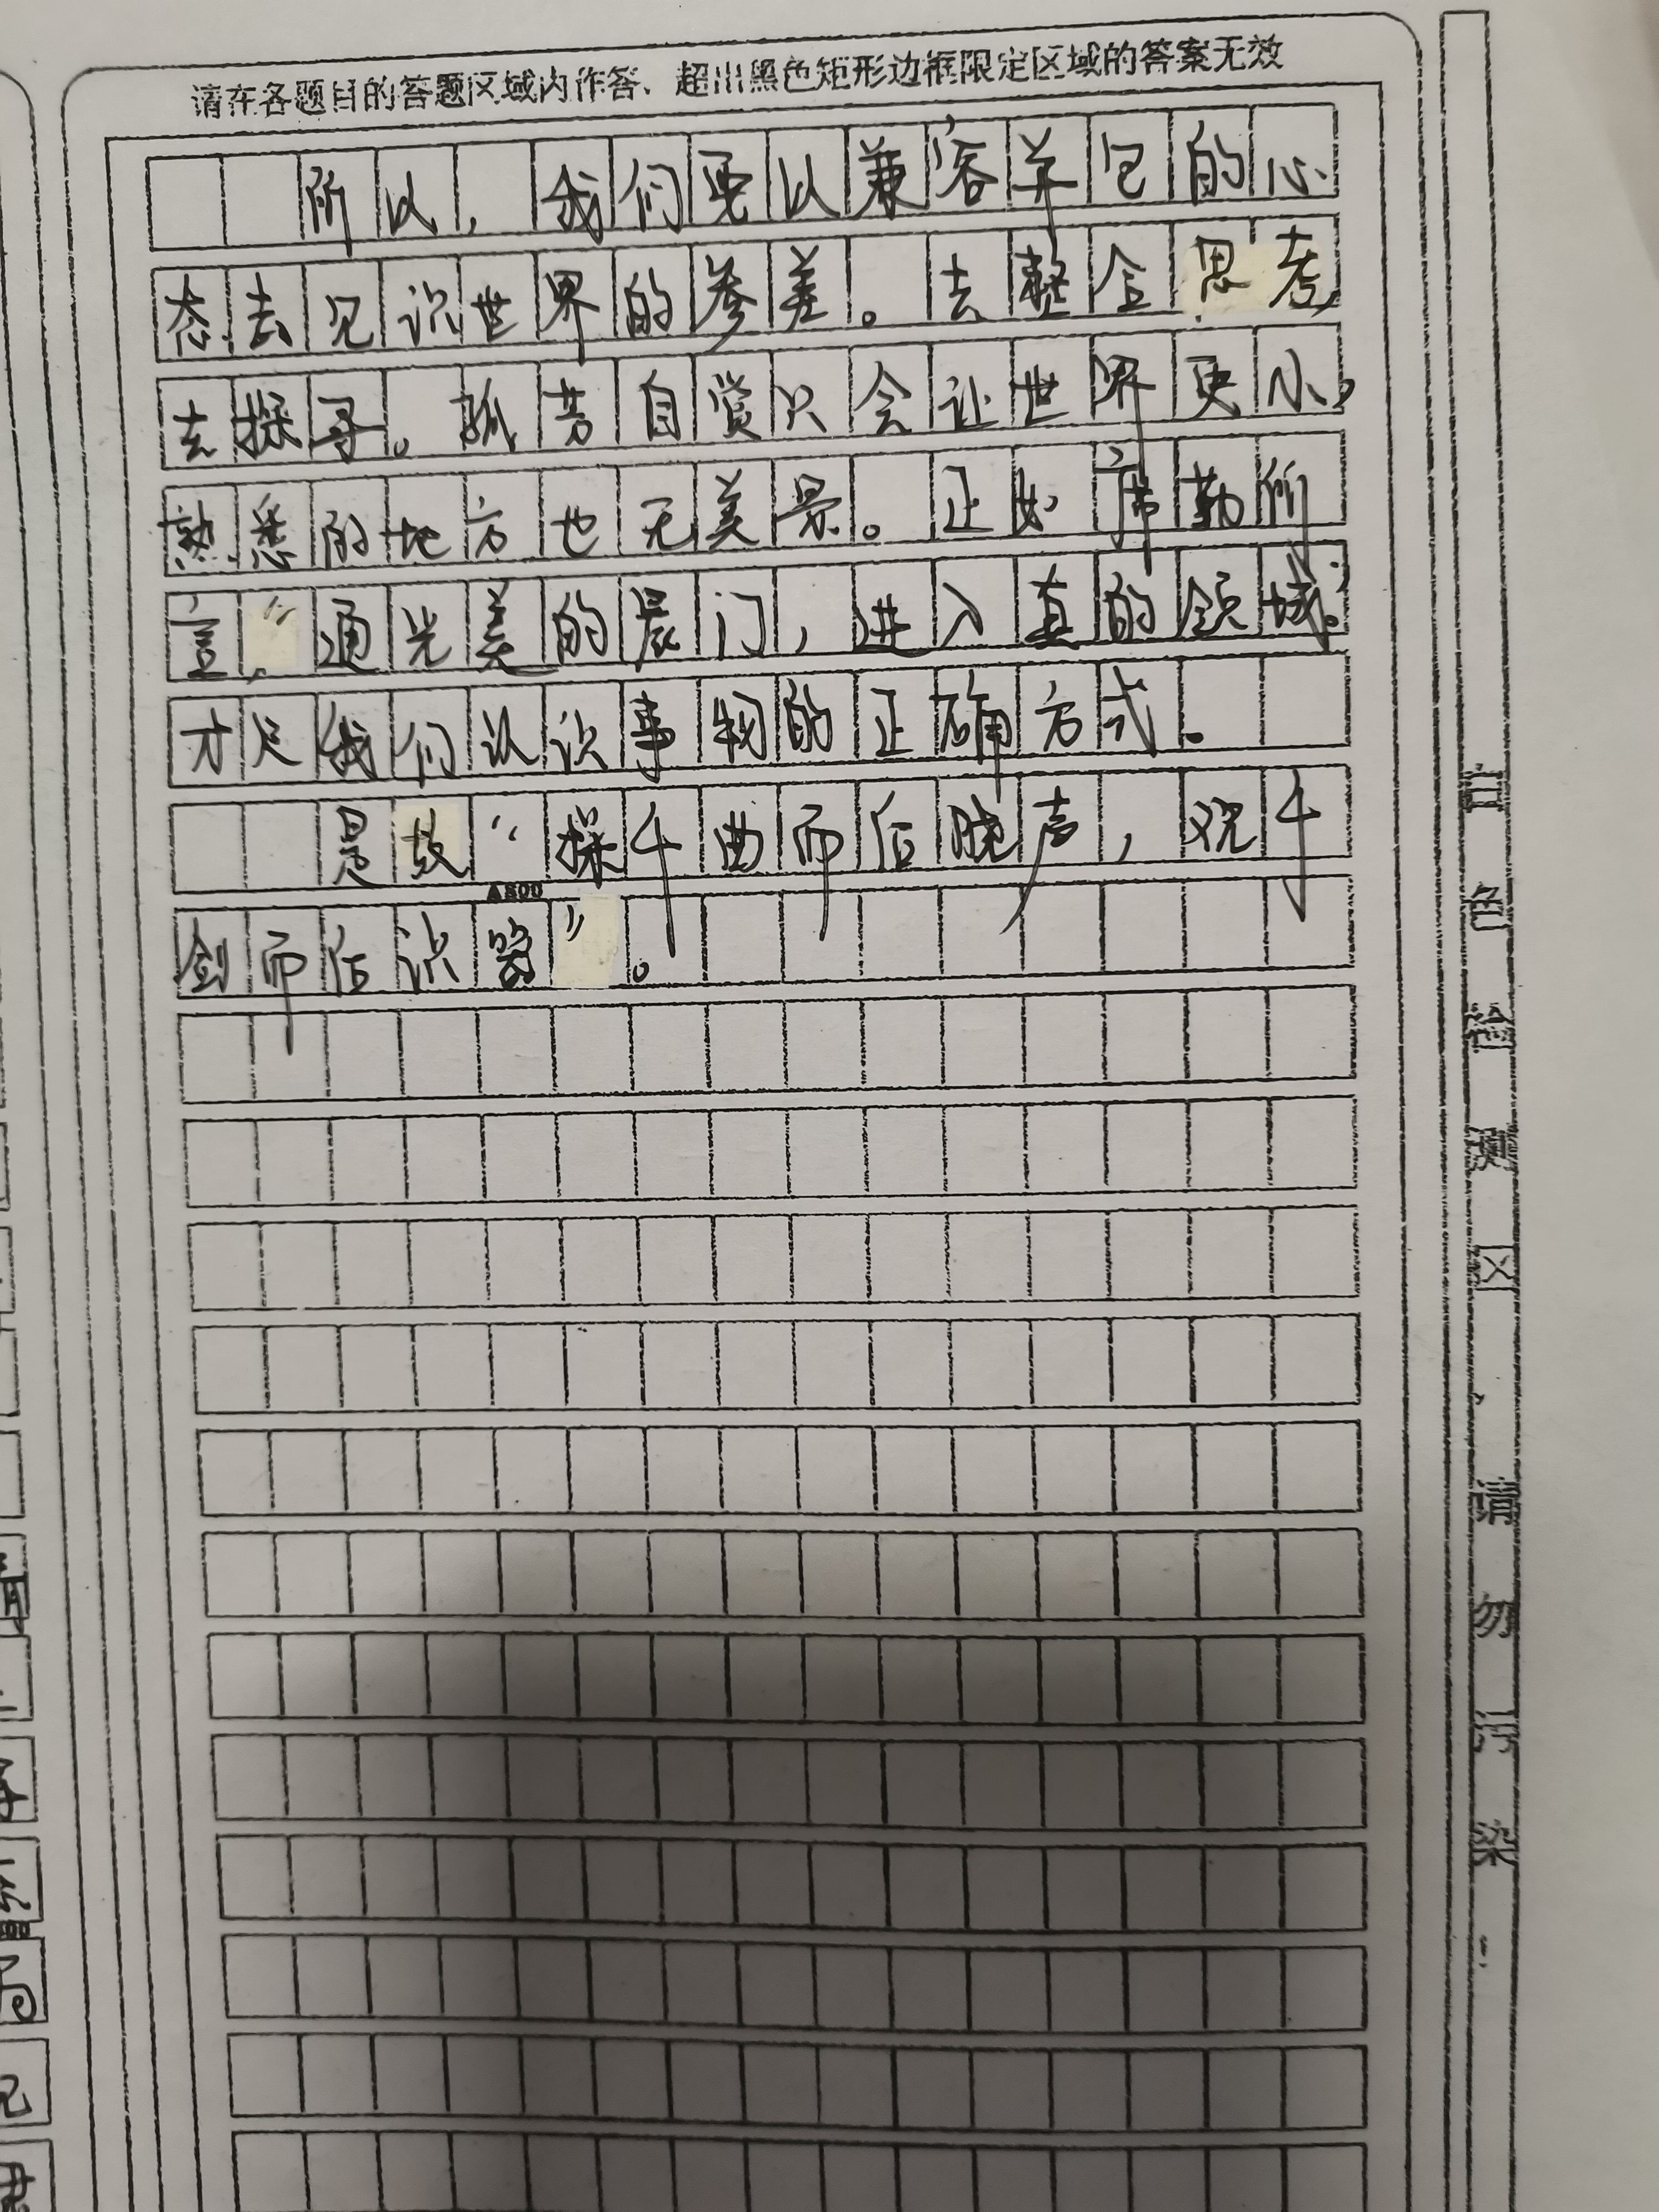 请在各题目的答题区域内作答、超出黑色矩形边框限定区域的答案无效
所以,我们要以兼容并包的心
态去见识世界的参差。去整合思考
去探寻。孤芳自赏只会让世界更小,
熟悉的地方也无美景。正如席勒所
言:“通光美的晨门,进入真的领域。”
才是我们认识事物的正确方式。
是故“操千曲而后晓声,观千
A800
剑而后识器”。
请勿污染